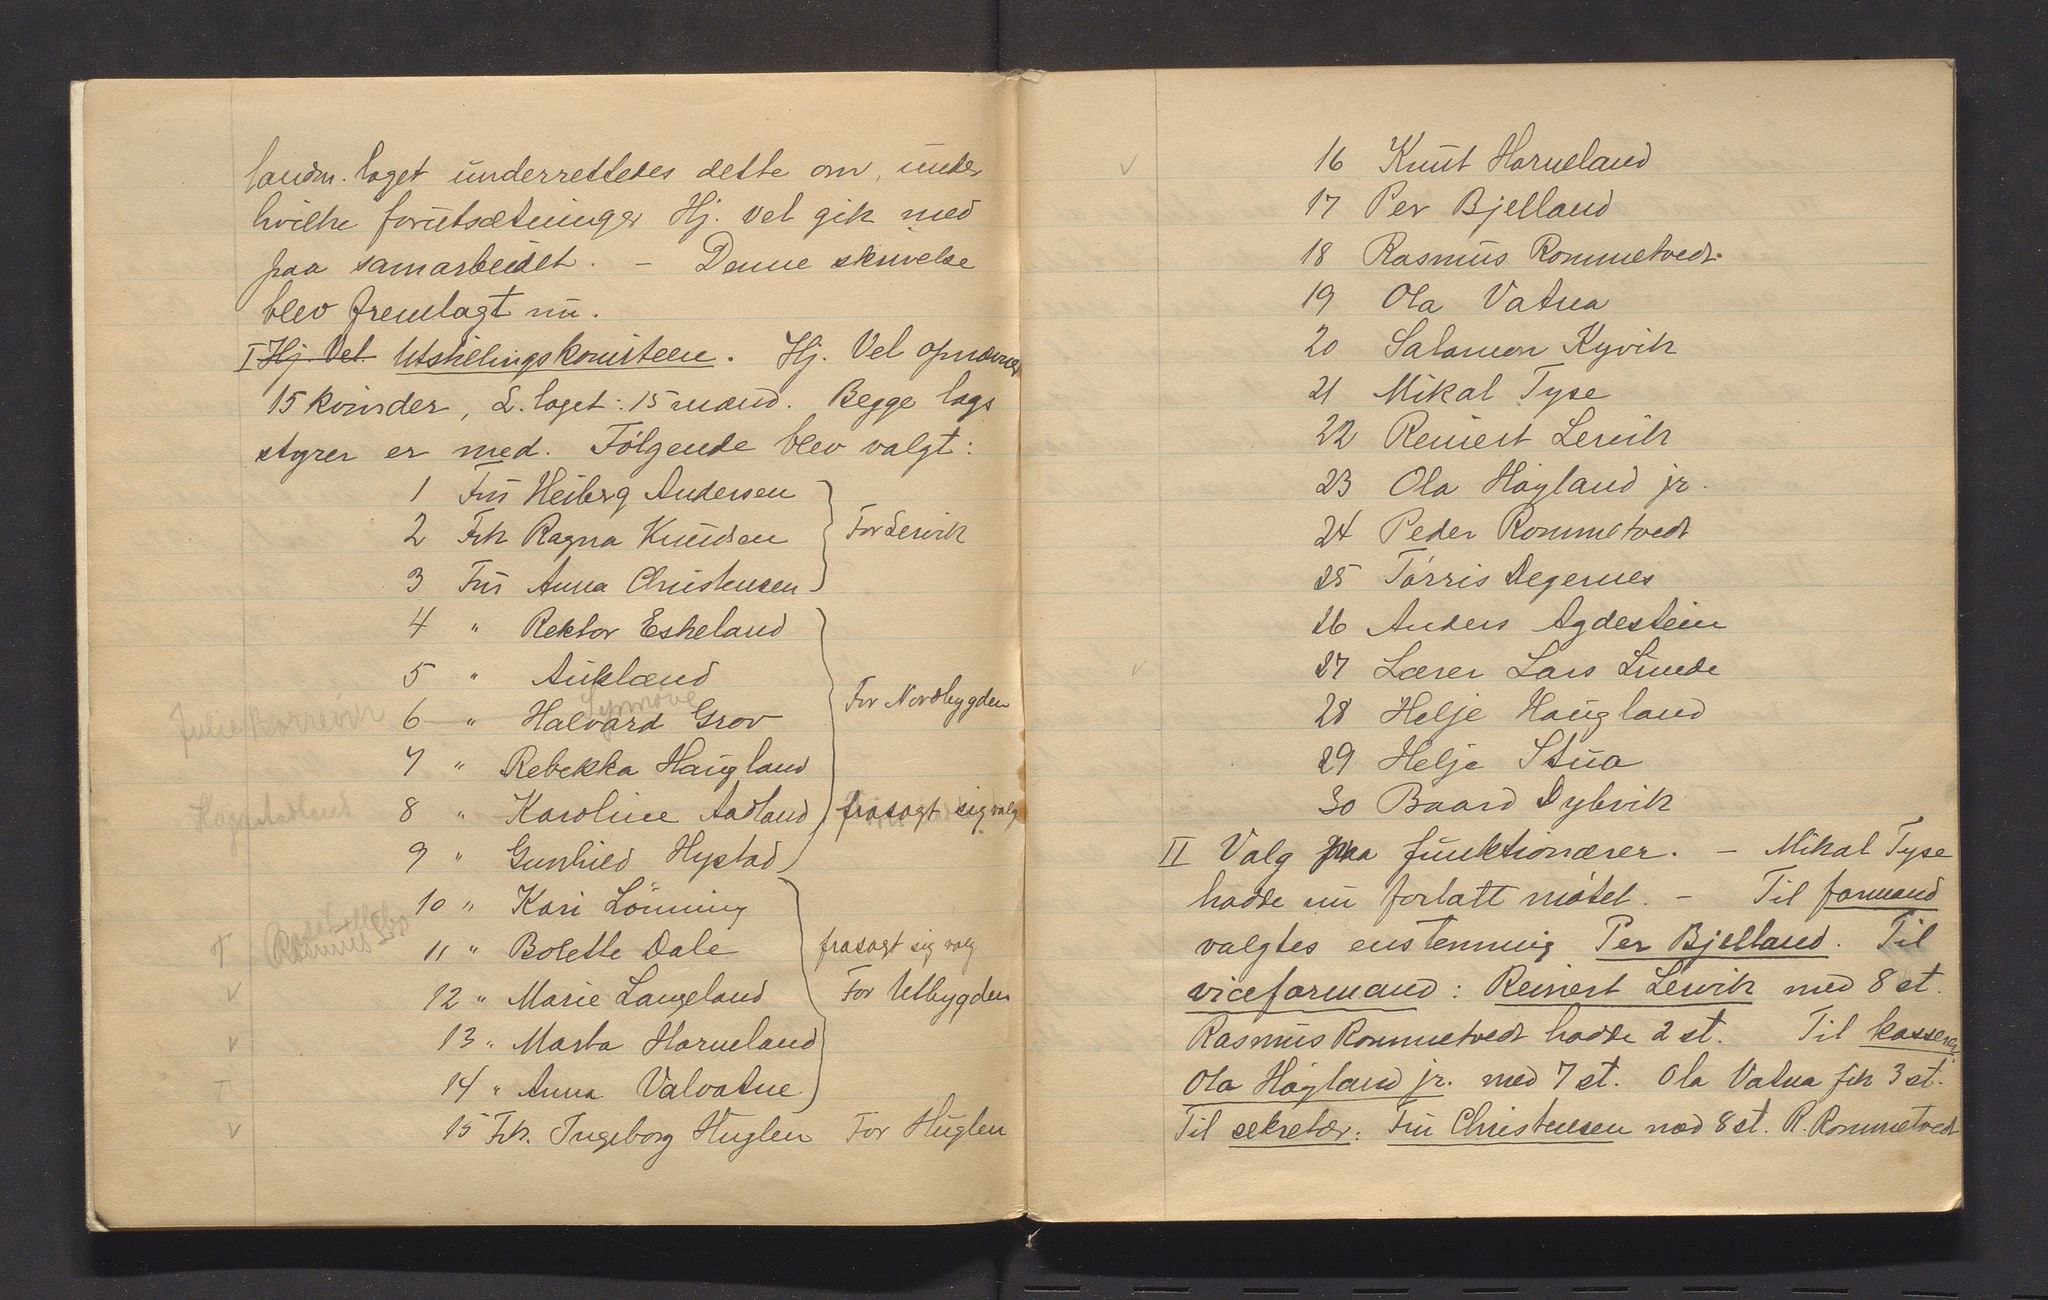 landm. laget underrettedes dette om, under
hvilke forutsætninger Hj. Vel gik med
paa samarbeidet. – Denne skrivelse
blev fremlagt nu.
I Hj. Vel Utstillingskomiteen. Hj. Vel opnævner
15 kvinder, L. laget: 15 mænd. Begge lags
styrer er med. Følgende blev valgt:
1 Fru Heiberg Andersen
2 Frk Ragna Knudsen For Lervik
3 Fru Anna Christensen
4 " Rektor Eskeland
5 " Aukland
Synnøve
Julie
6 " Halvard Grov For Nordbygden
7 " Rebekka Haugland
Aadland
8 " Karoline Aadland frasagt sig valg
9 " Gunhild Hystad
10 " Kari Lönning
T Rasmus
11 " Bolette Dale frasagt sig valg
v 12 " Marie Langeland For Utbygden
v 13 " Marta Horneland
T 14 " Anna Valvatne
v 15 Frk. Ingeborg Huglen For Huglen
v 16 Knut Horneland
17 Per Bjelland
18 Rasmus Rommetvedt
19 Ola Vatna
20 Salamon Kyvik
21 Mikal Tyse
22 Reinert Lervik
23 Ola Høyland jr.
24 Peder Rommetvedt
25 Tørris Degernes
26 Anders Agdestein
v 27 Lærer Lars Lunde
28 Helje Haugland
29 Helje Stua
30 Baard Dybvik
II Valg paa funktionærer. – Mikal Tyse
hadde nu forlatt møtet. – Til formand
valgtes enstemmig Per Bjelland. Til
viceformand: Reinert Lervik med 8 st.
Rasmus Rommetvedt hadde 2 st. Til kasserer
Ola Høyland jr. med 7 st. Ola Vatna fik 3 st.
Til sekretær: Fru Christensen med 8 st. R. Rommetvedt